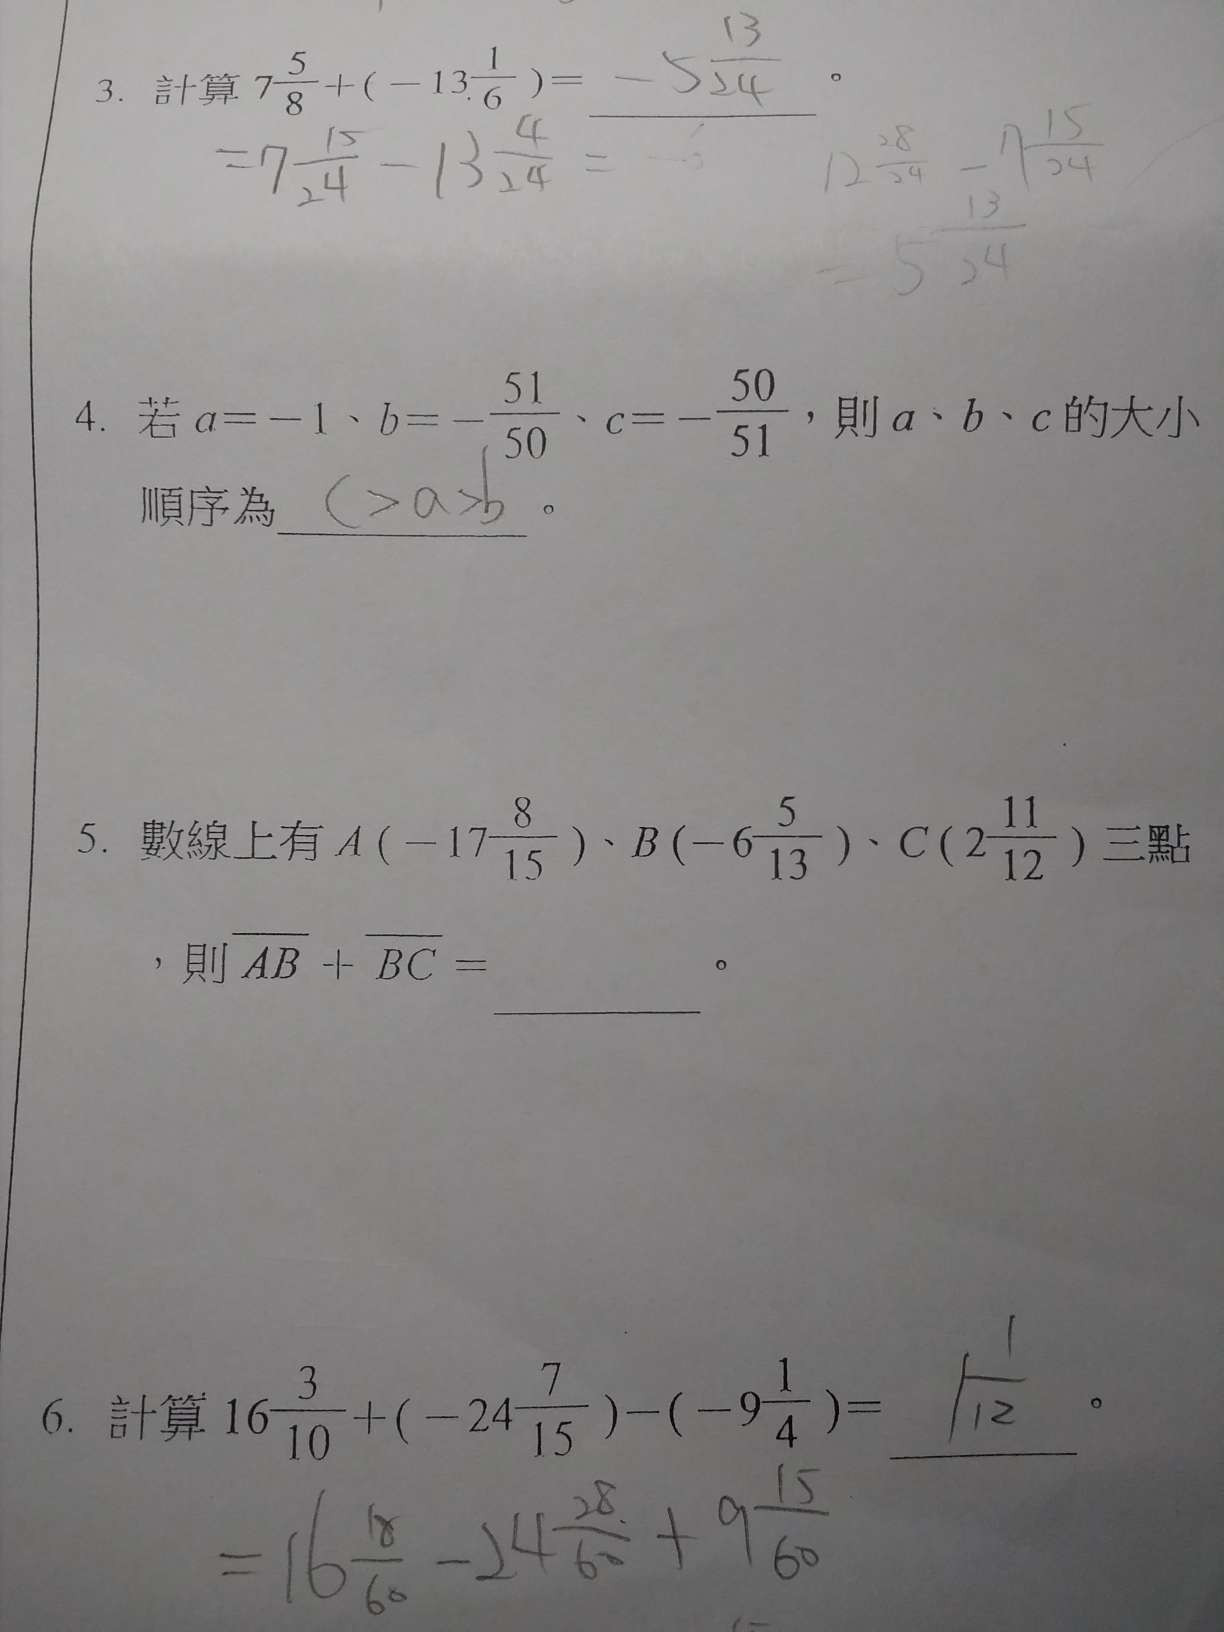 3. 計算 7 5/8 + ( - 13 1/6 ) = - 5 13/24 。
= 7 15/24 - 13 4/24 =
12 28/24 - 7 15/24
= 5 13/24
4. 若 a = -1、b = - 51/50、c = - 50/51，則 a、b、c 的大小
順序為 c > a > b 。
5. 數線上有 A ( - 17 8/15 )、B ( - 6 5/13 )、C ( 2 11/12 ) 三點
，則 AB + BC = 。
6. 計算 16 3/10 + ( - 24 7/15 ) - ( - 9 1/4 ) = 1 1/12 。
= 16 18/60 - 24 28/60 + 9 15/60